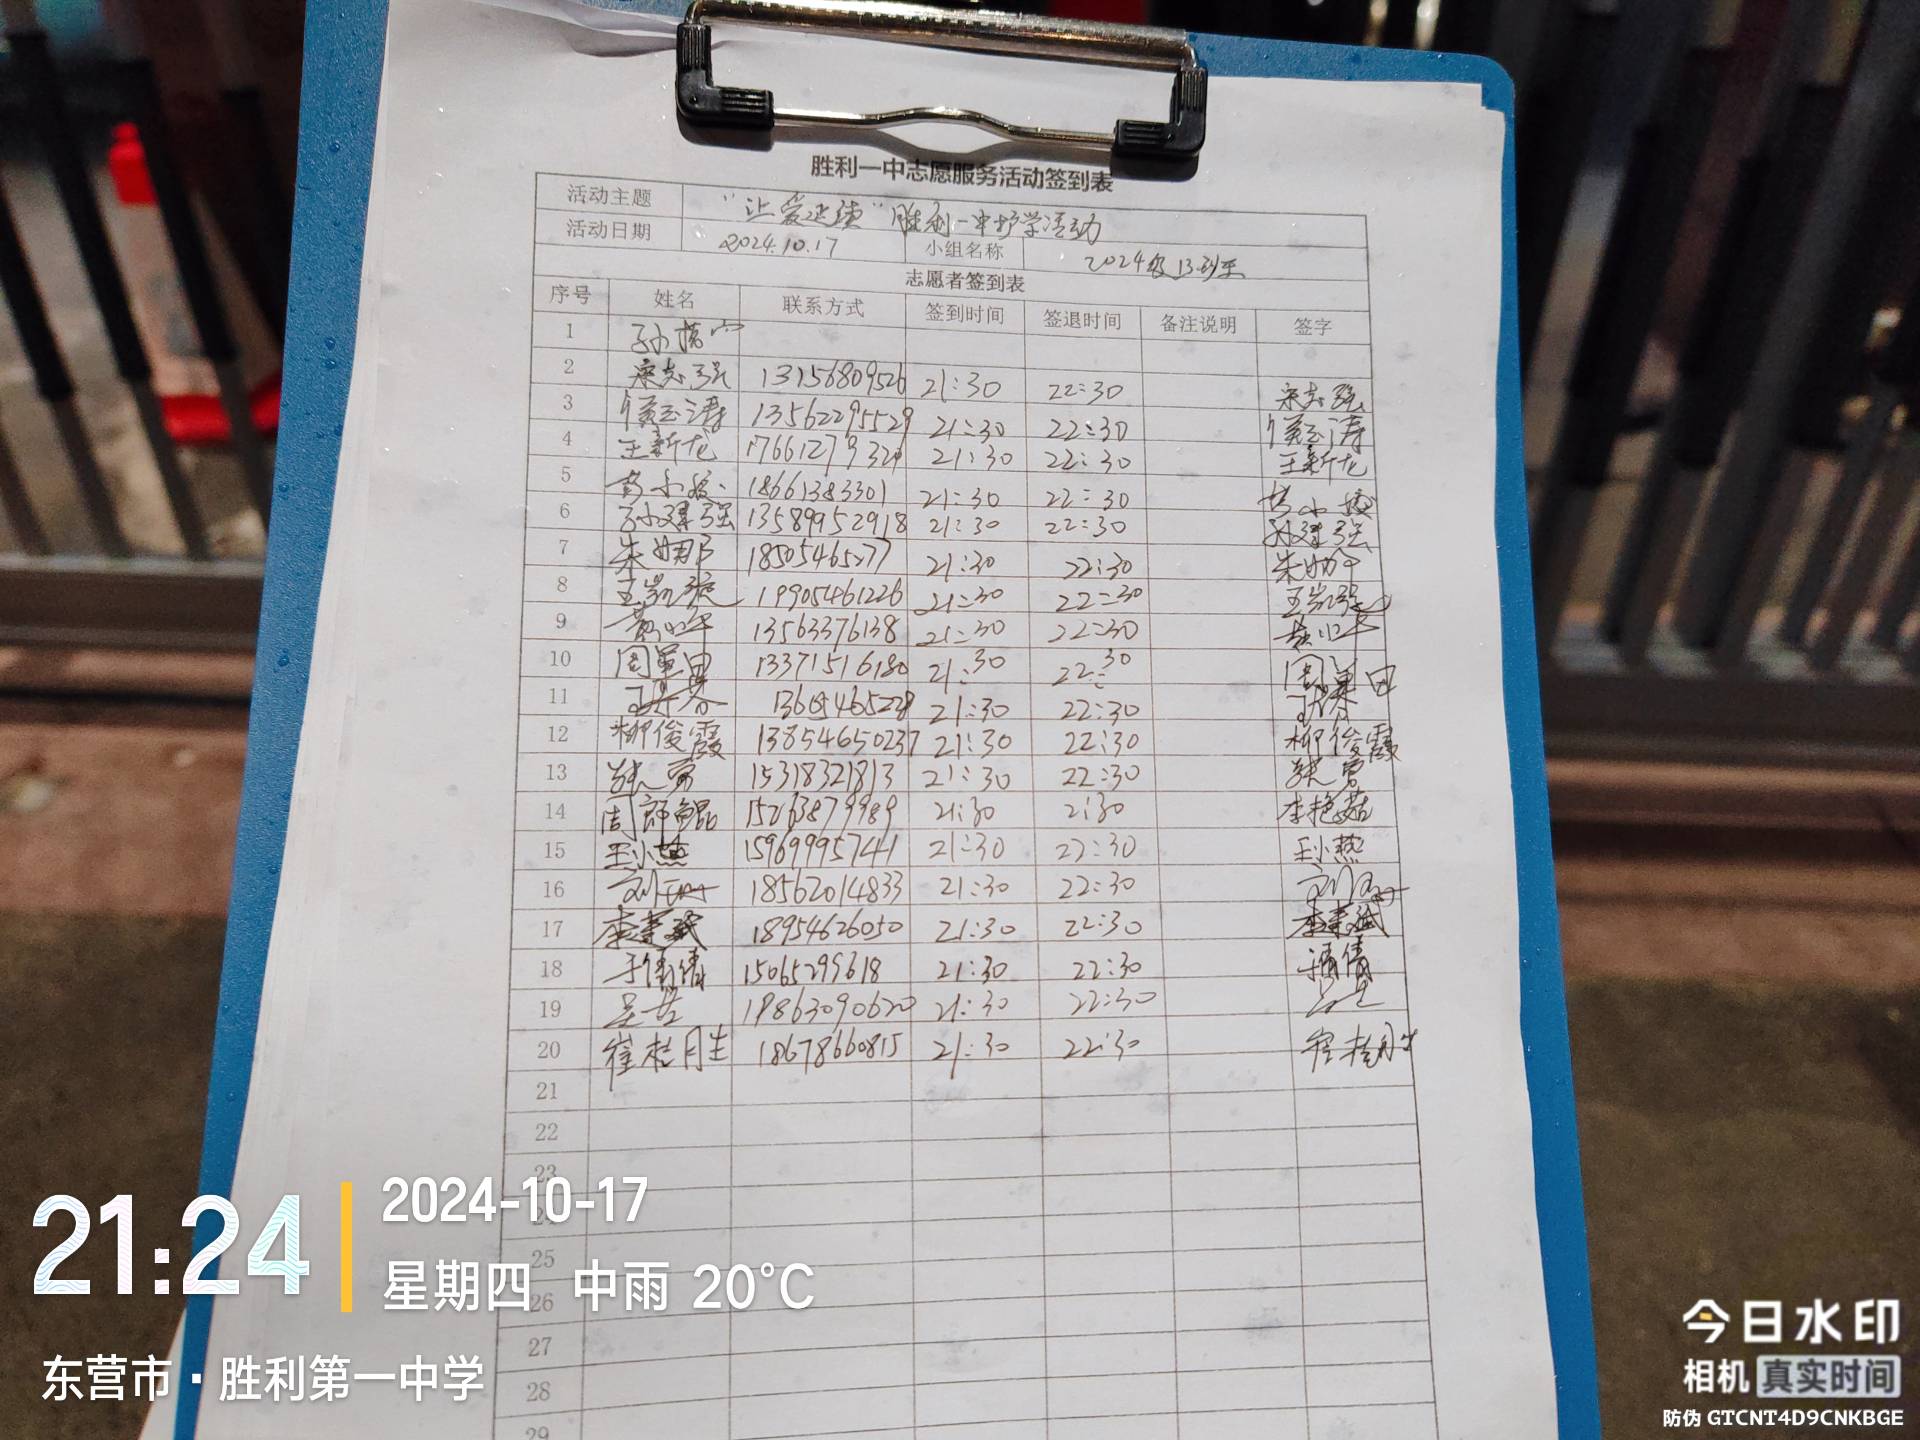 胜利一中志愿服务活动签到表
活动主题 “让爱延续”胜利一中护学活动
活动日期 2024.10.17 小组名称 2024级13班
志愿者签到表
序号 姓名 联系方式 签到时间 签退时间 备注说明 签字
1
2 宋志强 13156809526 21:30 22:30 宋志强
3 侯玉涛 13562295529 21:30 22:30 侯玉涛
4 王新龙 17661279324 21:30 22:30 王新龙
5 18661383301 21:30 22:30
6 孙建强 13589952918 21:30 22:30 孙建强
7 朱娜 18505465277 21:30 22:30 朱娜
8 王凯强 19905461226 21:30 22:30 王凯强
9 13563376138 21:30 22:30
10 13371516180 21:30 22:30
11 21:30 22:30
12 柳俊霞 13854650237 21:30 22:30 柳俊霞
13 15318321813 21:30 22:30
14 周郎鲲 15263879989 21:30 2:30 李艳茹
15 王小燕 15969995741 21:30 22:30 王小燕
16 18562014833 21:30 22:30
17 18954626050 21:30 22:30
18 于倩倩 15065299618 21:30 22:30 于倩倩
19 19863090620 21:30 22:30
20 崔桂月生 18678660815 21:30 22:30
21
22
23
25
26
27
28
29
21:24
2024-10-17
星期四 中雨 20°C
东营市·胜利第一中学
今日水印
相机 真实时间
防伪 GTCNT4D9CNKBGE